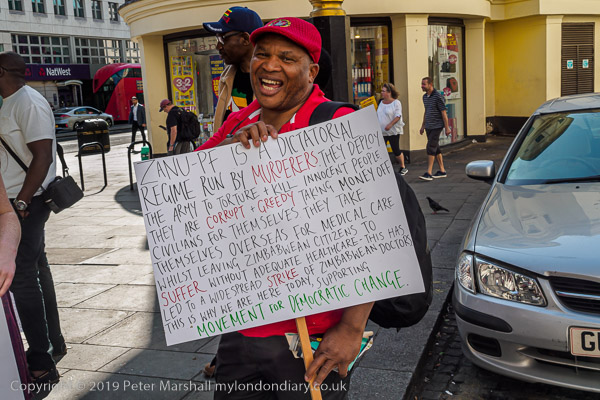 NatWest
3 for 2
ZANU PF IS A DICTATORIAL
REGIME RUN BY MURDERERS THEY DEPLOY
THE ARMY TO TORTURE + KILL INNOCENT PEOPLE.
THEY ARE CORRUPT + GREEDY TAKING MONEY OFF
CIVILIANS FOR THEMSELVES THEY TAKE
THEMSELVES OVERSEAS FOR MEDICAL CARE
WHILST LEAVING ZIMBABWEAN CITIZENS TO
SUFFER WITHOUT ADEQUATE HEALTHCARE - THIS HAS
LED TO A WIDESPREAD STRIKE OF ZIMBABWEAN DOCTORS
THIS IS WHY WE ARE HERE TODAY, SUPPORTING
MOVEMENT FOR DEMOCRATIC CHANGE.
Copyright © 2019 Peter Marshall mylondondiary.co.uk